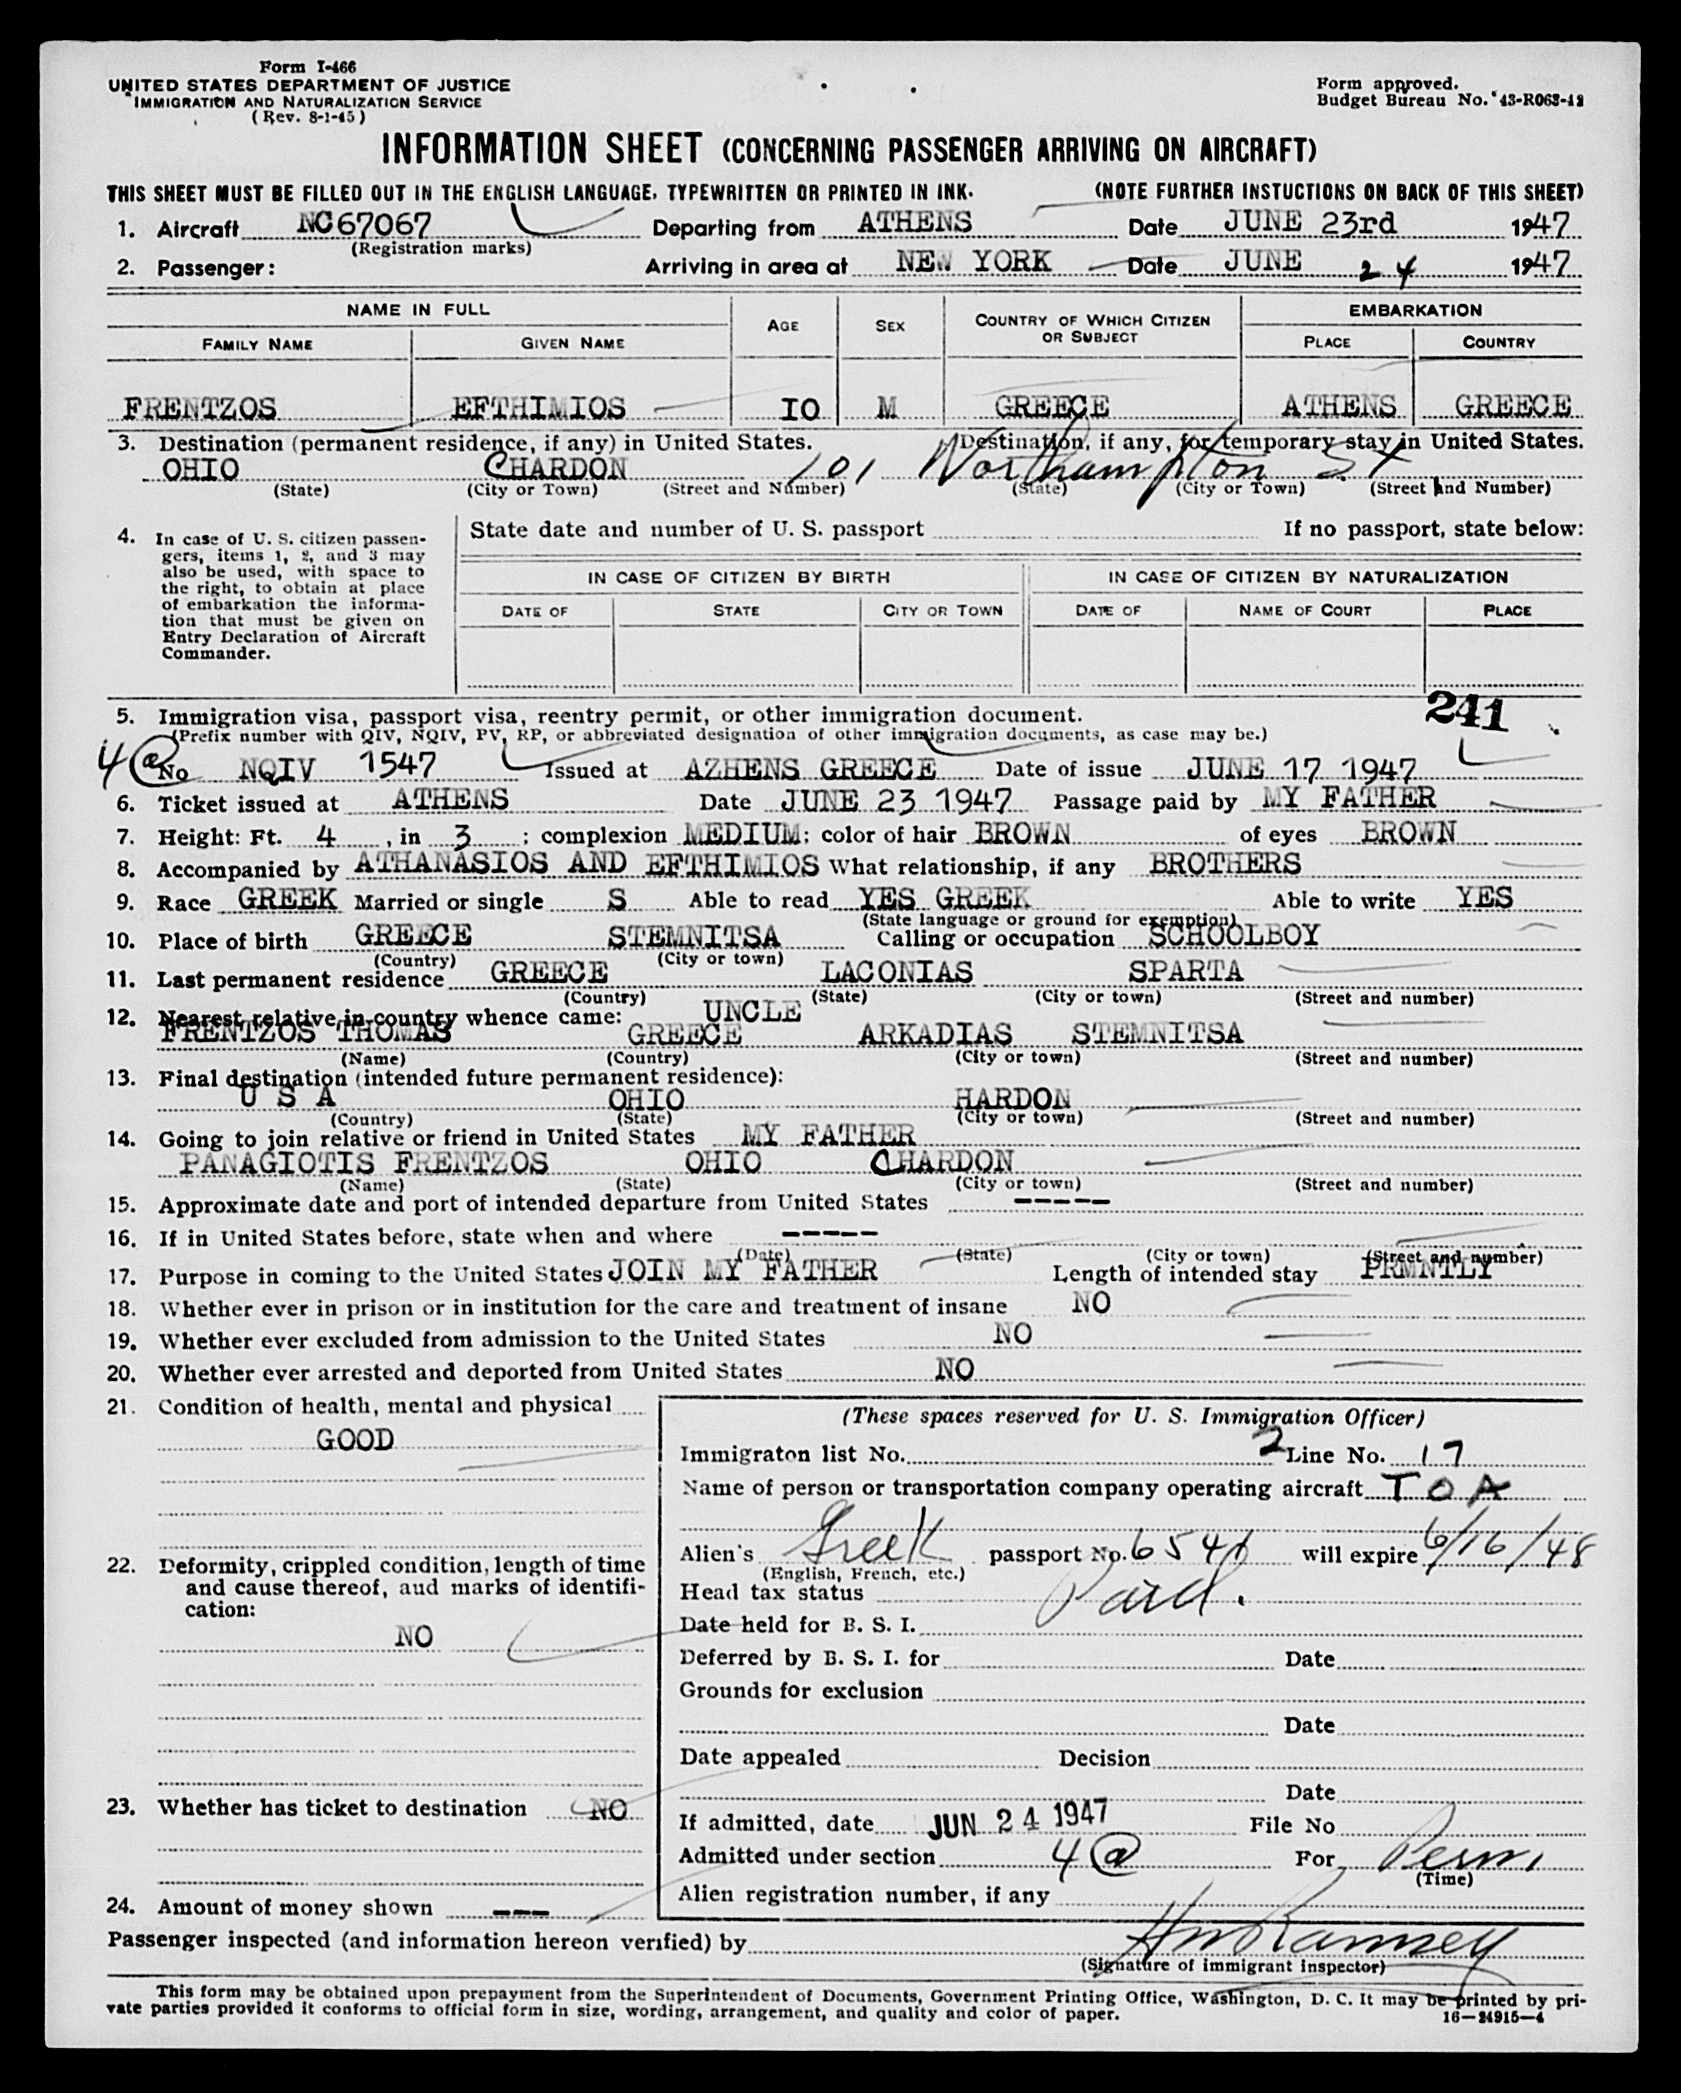 Form I-466
UNITED STATES DEPARTMENT OF JUSTICE
IMMIGRATION AND NATURALIZATION SERVICE
(Rev. 8-1-45)
Form approved.
Budget Bureau No. 43-R063-42
INFORMATION SHEET (CONCERNING PASSENGER ARRIVING ON AIRCRAFT)
THIS SHEET MUST BE FILLED OUT IN THE ENGLISH LANGUAGE, TYPEWRITTEN OR PRINTED IN INK. (NOTE FURTHER INSTUCTIONS ON BACK OF THIS SHEET)
1. Aircraft NC67067 Departing from ATHENS Date JUNE 23rd 1947
(Registration marks)
2. Passenger: Arriving in area at NEW YORK Date JUNE 24 1947
NAME IN FULL AGE SEX COUNTRY OF WHICH CITIZEN OR SUBJECT EMBARKATION
FAMILY NAME GIVEN NAME PLACE COUNTRY
FRENTZOS EFTHIMIOS IO M GREECE ATHENS GREECE
3. Destination (permanent residence, if any) in United States. Destination, if any, for temporary stay in United States.
OHIO CHARDON 101 Northampton St
(State) (City or Town) (Street and Number) (State) (City or Town) (Street and Number)
4. In case of U. S. citizen passengers, items 1, 2, and 3 may also be used, with space to the right, to obtain at place of embarkation the information that must be given on Entry Declaration of Aircraft Commander.
State date and number of U. S. passport If no passport, state below:
IN CASE OF CITIZEN BY BIRTH IN CASE OF CITIZEN BY NATURALIZATION
DATE OF STATE CITY OR TOWN DATE OF NAME OF COURT PLACE
241
5. Immigration visa, passport visa, reentry permit, or other immigration document.
(Prefix number with QIV, NQIV, PV, RP, or abbreviated designation of other immigration documents, as case may be.)
4(a) No NQIV 1547 Issued at AZHENS GREECE Date of issue JUNE 17 1947
6. Ticket issued at ATHENS Date JUNE 23 1947 Passage paid by MY FATHER
7. Height: Ft. 4, in 3; complexion MEDIUM; color of hair BROWN of eyes BROWN
8. Accompanied by ATHANASIOS AND EFTHIMIOS What relationship, if any BROTHERS
9. Race GREEK Married or single S Able to read YES GREEK Able to write YES
(State language or ground for exemption)
10. Place of birth GREECE STEMNITSA Calling or occupation SCHOOLBOY
(Country) (City or town)
11. Last permanent residence GREECE LACONIAS SPARTA
(Country) (State) (City or town) (Street and number)
12. Nearest relative in country whence came: UNCLE
FRENTZOS THOMAS GREECE ARKADIAS STEMNITSA
(Name) (Country) (City or town) (Street and number)
13. Final destination (intended future permanent residence):
U S A OHIO HARDON
(Country) (State) (City or town) (Street and number)
14. Going to join relative or friend in United States MY FATHER
PANAGIOTIS FRENTZOS OHIO CHARDON
(Name) (State) (City or town) (Street and number)
15. Approximate date and port of intended departure from United States -----
16. If in United States before, state when and where -----
(Date) (State) (City or town) (Street and number)
17. Purpose in coming to the United States JOIN MY FATHER Length of intended stay PRMNTLY
18. Whether ever in prison or in institution for the care and treatment of insane NO
19. Whether ever excluded from admission to the United States NO
20. Whether ever arrested and deported from United States NO
21. Condition of health, mental and physical
GOOD
22. Deformity, crippled condition, length of time and cause thereof, and marks of identification:
NO
23. Whether has ticket to destination NO
24. Amount of money shown ---
(These spaces reserved for U. S. Immigration Officer)
Immigraton list No. 2 Line No. 17
Name of person or transportation company operating aircraft T O A
Alien's Greek passport No. 6541 will expire 6/16/48
(English, French, etc.)
Head tax status Paid.
Date held for B. S. I.
Deferred by B. S. I. for Date
Grounds for exclusion
Date
Date appealed Decision
Date
If admitted, date JUN 24 1947 File No
Admitted under section 4(a) For Perm.
(Time)
Alien registration number, if any
Passenger inspected (and information hereon verified) by
(Signature of immigrant inspector)
This form may be obtained upon prepayment from the Superintendent of Documents, Government Printing Office, Washington, D. C. It may be printed by private parties provided it conforms to official form in size, wording, arrangement, and quality and color of paper.
16—24915-4